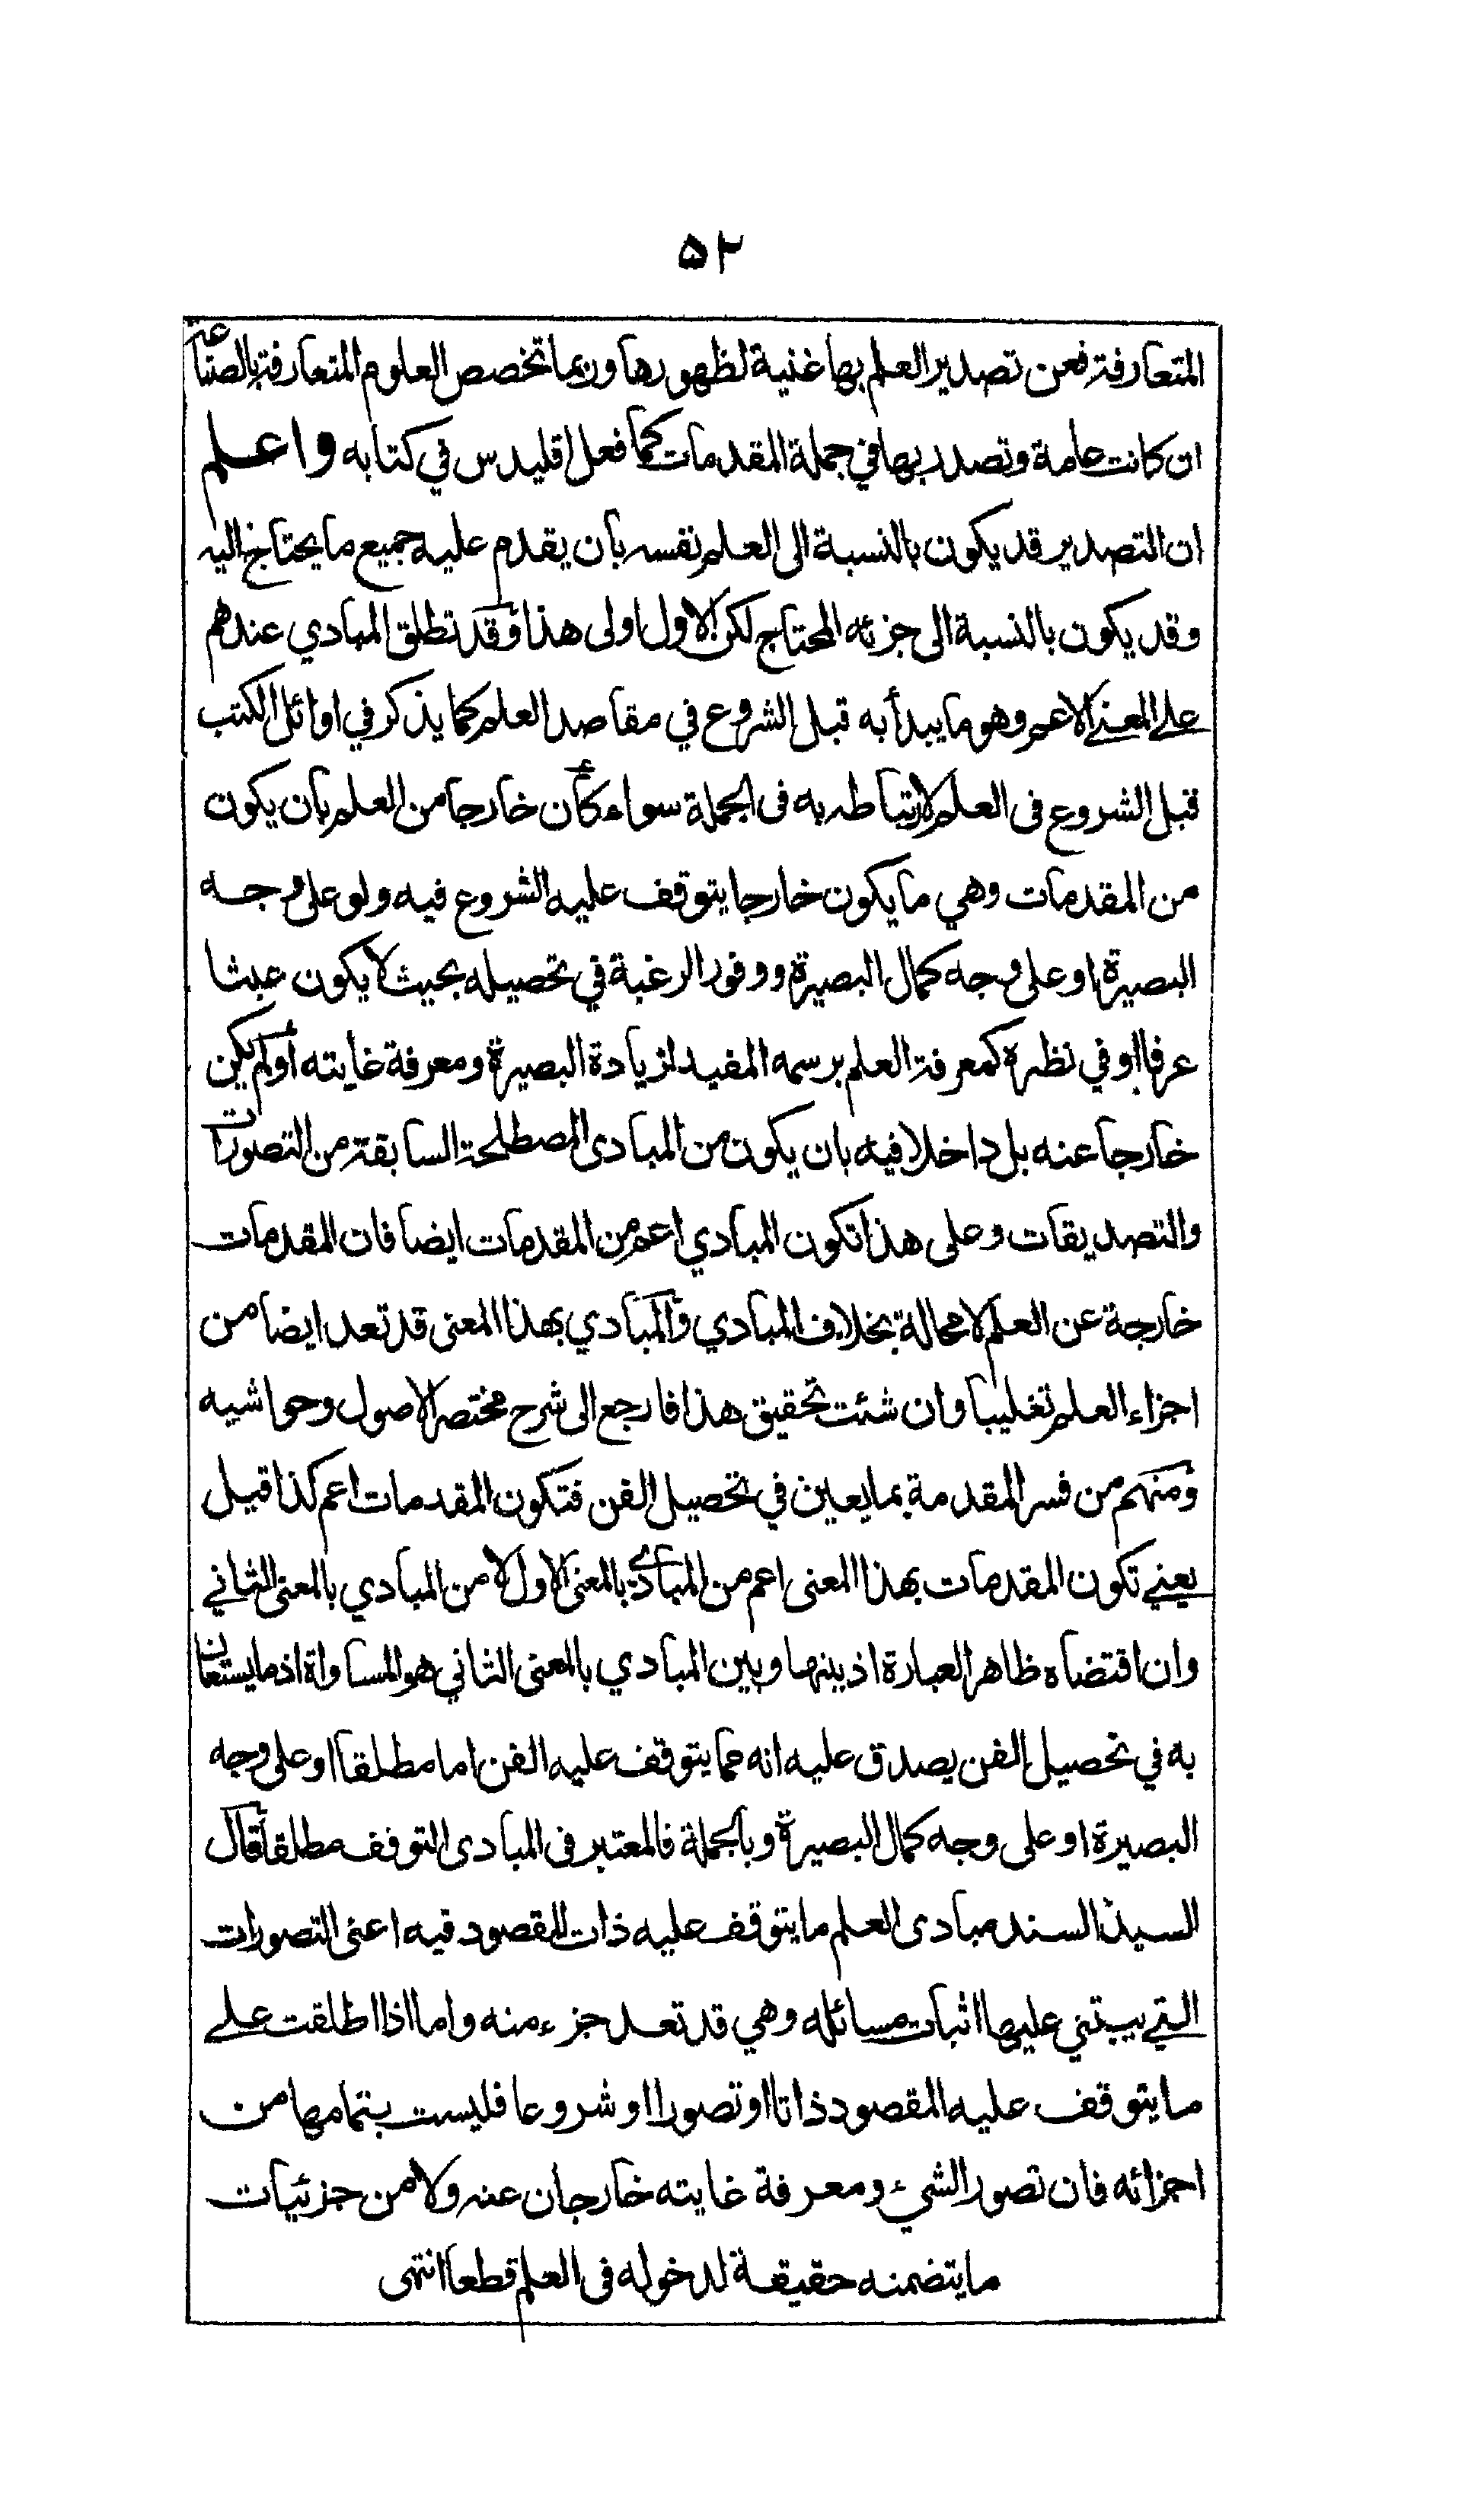 ۵۲
المتعارفة فعن تصدير العلم بها غنية لظهورها وربما تخصص العلوم المتعارفة بالصناعة
ان كانت عامة وتصدر بها في جملة المقدمات كما فعل اقليدس في كتابه واعلم
ان التصدير قد يكون بالنسبة الى العلم نفسه بان يقدم عليه جميع ما يحتاج اليه
وقد يكون بالنسبة الى جزئه المحتاج لكن الاول اولى هذا وقد تطلق المبادي عندهم
على المعنى الاعم وهو ما يبدأ به قبل الشروع في مقاصد العلم كما يذكر في اوائل الكتب
قبل الشروع فى العلم لارتباطه به فى الجملة سواء كان خارجا من العلم بان يكون
من المقدمات وهي ما يكون خارجا يتوقف عليه الشروع فيه ولو على وجه
البصيرة او على وجه كمال البصيرة ووفور الرغبة في تحصيله بحيث لا يكون عبثا
عرفا او في نظره كمعرفة العلم برسمه المفيد لزيادة البصيرة ومعرفة غايته أولم يكن
خارجا عنه بل داخلا فيه بان يكون من المبادى المصطلحة السابقة من التصورات
والتصديقات وعلى هذا تكون المبادي اعم من المقدمات ايضا فان المقدمات
خارجة عن العلم لا محالة بخلاف المبادي والمبادي بهذا المعنى قد تعد ايضا من
اجزاء العلم تغليبا وان شئت تحقيق هذا فارجع الى شرح مختصر الاصول وحواشيه
ومنهم من فسر المقدمة بما يعين في تحصيل الفن فتكون المقدمات اعم كذا قيل
يعني تكون المقدمات بهذا المعنى اعم من المبادي بالمعنى الاول لا من المبادي بالمعنى الثاني
وان اقتضاه ظاهر العبارة اذ بينها وبين المبادي بالمعنى الثاني هو المساواة اذ ما يستعان
به في تحصيل الفن يصدق عليه انه مما يتوقف عليه الفن اما مطلقا او على وجه
البصيرة او على وجه كمال البصيرة وبالجملة فالمعتبر فى المبادى التوقف مطلقا قال
السيد السند مبادى العلم ما يتوقف عليه ذات المقصود فيه اعنى التصورات
التي يبتني عليها اثبات مسائله وهي قد تعد جزء منه واما اذا اطلقت على
ما يتوقف عليه المقصود ذاتا او تصورا او شروعا فليست بتمامها من
اجزائه فان تصور الشيء ومعرفة غايته خارجان عنه ولا من جزئيات
ما يتضمنه حقيقة لدخوله فى العلم قطعا انتهى